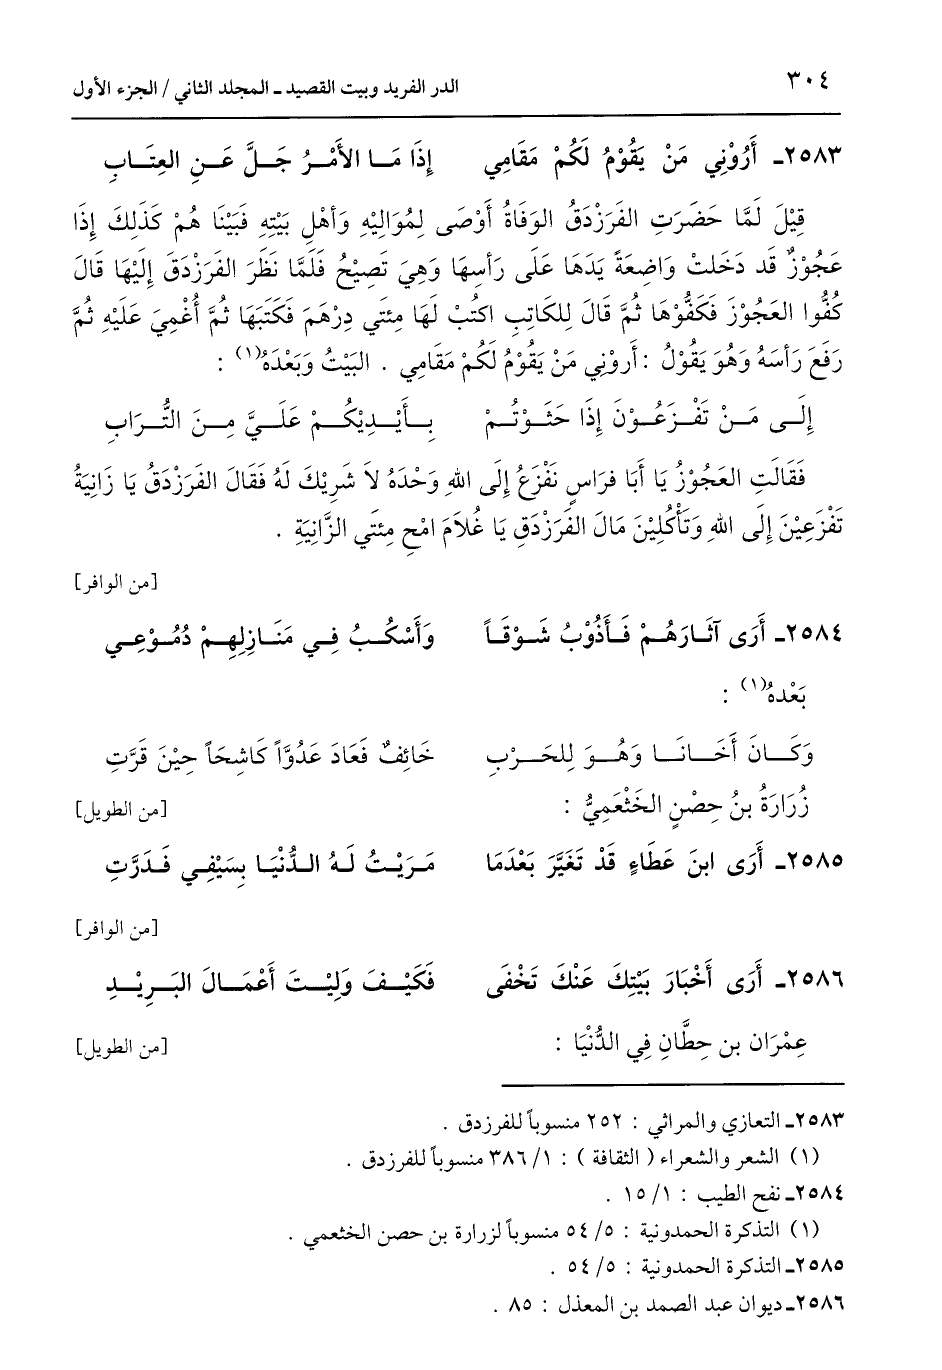 ٣٠٤ الدر الفريد وبيت القصيد ـ المجلد الثاني / الجزء الأول
٢٥٨٣ـ أَرُوْنِي مَنْ يَقُوْمُ لَكُمْ مَقَامِي إِذَا مَا الأَمْرُ جَلَّ عَنِ العِتَابِ
قِيْلَ لَمَّا حَضَرَتِ الفَرَزْدَقُ الوَفَاةُ أَوْصَى لِمُوَالِيْهِ وَأَهْلِ بَيْتِهِ فَبَيْنَا هُمْ كَذَلِكَ إِذَا
عَجُوْزٌ قَد دَخَلتْ وَاضِعَةً يَدَهَا عَلَى رَأسِهَا وَهِيَ تَصِيْحُ فَلَمَّا نَظَرَ الفَرَزْدَقَ إِلَيْهَا قَالَ
كُفُّوا العَجُوْزَ فَكَفُّوْهَا ثُمَّ قَالَ لِلكَاتِبِ اكتُبْ لَهَا مِئتي دِرْهَم فَكَتَبَهَا ثُمَّ أُغْمِيَ عَلَيْهِ ثُمَّ
رَفَعَ رَأسَهُ وَهُوَ يَقُوْلُ : أرونِي مَنْ يَقُوْمُ لَكُمْ مَقَامِي . البَيْتُ وَبَعْدَهُ(١) :
إِلَى مَنْ تَفْزَعُوْنَ إِذَا حَثَوْتُمْ بِأَيْدِيْكُمْ عَلَيَّ مِنَ التُّرَابِ
فَقَالَتِ العَجُوْزُ يَا أَبَا فرَاسٍ نَفْزَعُ إِلَى اللهِ وَحْدَهُ لاَ شَرِيْكَ لَهُ فَقَالَ الفَرَزْدَقُ يَا زَانِيَةُ
تَفْزَعِيْنَ إِلَى اللهِ وَتَأْكُلِيْنَ مَالَ الفَرَزْدَقِ يَا غُلاَمَ امْحِ مِئتَي الزَّانِيَةِ .
[من الوافر]
٢٥٨٤ـ أَرَى آثَارَهُمْ فَأَذُوْبُ شَوْقَاً وَأَسْكُبُ فِي مَنَازِلِهِمْ دُمُوْعِي
بَعْدهُ(١) :
وَكَانَ أَخَانَا وَهُوَ لِلحَرْبِ خَائِفٌ فَعَادَ عَدُوَّاً كَاشِحَاً حِيْنَ قَرَّتِ
زُرَارَةُ بنُ حِصْنٍ الخَثْعَمِيُّ : [من الطويل]
٢٥٨٥ـ أَرَى ابنَ عَطَاءٍ قَدْ تَغَيَّرَ بَعْدَمَا مَرَيْتُ لَهُ الدُّنْيَا بِسَيْفِي فَدَرَّتِ
[من الوافر]
٢٥٨٦ـ أَرَى أَخْبَارَ بَيْتِكَ عَنْكَ تَخْفَى فَكَيْفَ وَلِيْتَ أَعْمَالَ البَرِيْدِ
عِمْرَان بن حِطَّانِ فِي الدُّنْيَا : [من الطويل]
٢٥٨٣ـ التعازي والمراثي : ٢٥٢ منسوباً للفرزدق .
(١) الشعر والشعراء ( الثقافة ) : ١/ ٣٨٦ منسوباً للفرزدق .
٢٥٨٤ـ نفح الطيب : ١/ ١٥ .
(١) التذكرة الحمدونية : ٥/ ٥٤ منسوباً لزرارة بن حصن الخثعمي .
٢٥٨٥ـ التذكرة الحمدونية : ٥/ ٥٤ .
٢٥٨٦ـ ديوان عبد الصمد بن المعذل : ٨٥ .